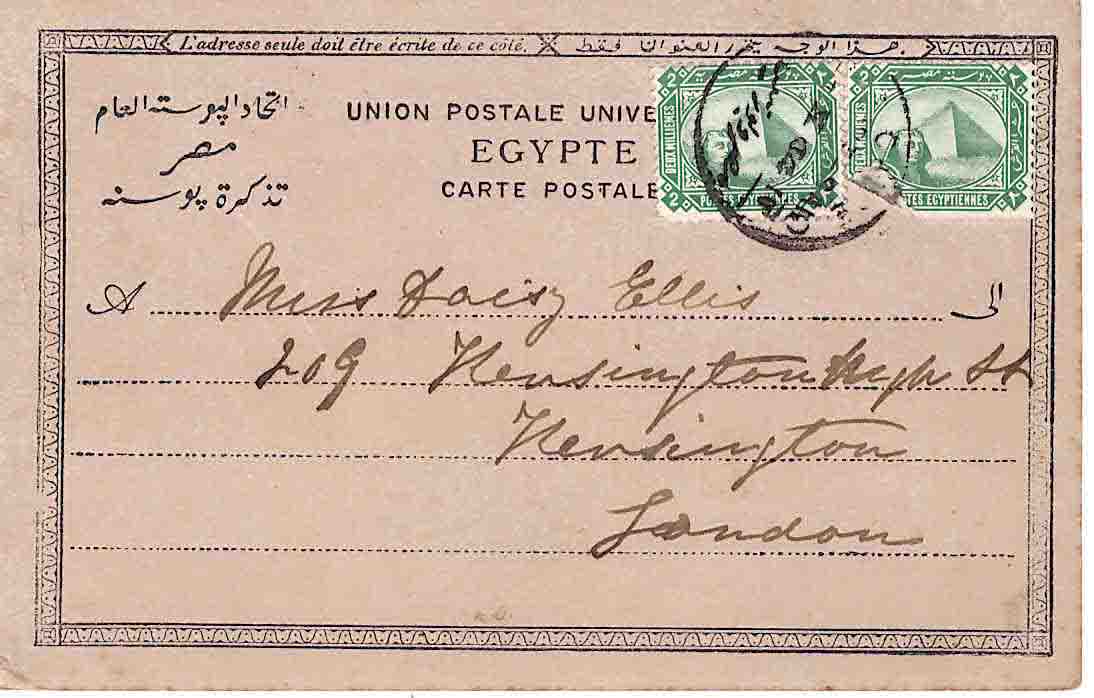 L'adresse seule doit être écrite de ce côté. هذا الوجه يتحرر العنوان فقط.
اتحاد البوسته العام
مصر
تذكرة بوسته
UNION POSTALE UNIVE
EGYPTE
CARTE POSTALE
2 بوسته مصرية ٢
DEUX MILLIEMES
POSTES EGYPTIENNES
2 ٢
2 بوسته مصرية ٢
DEUX MILLIEMES
TES EGYPTIENNES
٢
A Miss Daisy Ellis الى
209 Kensington High St
Kensington
London